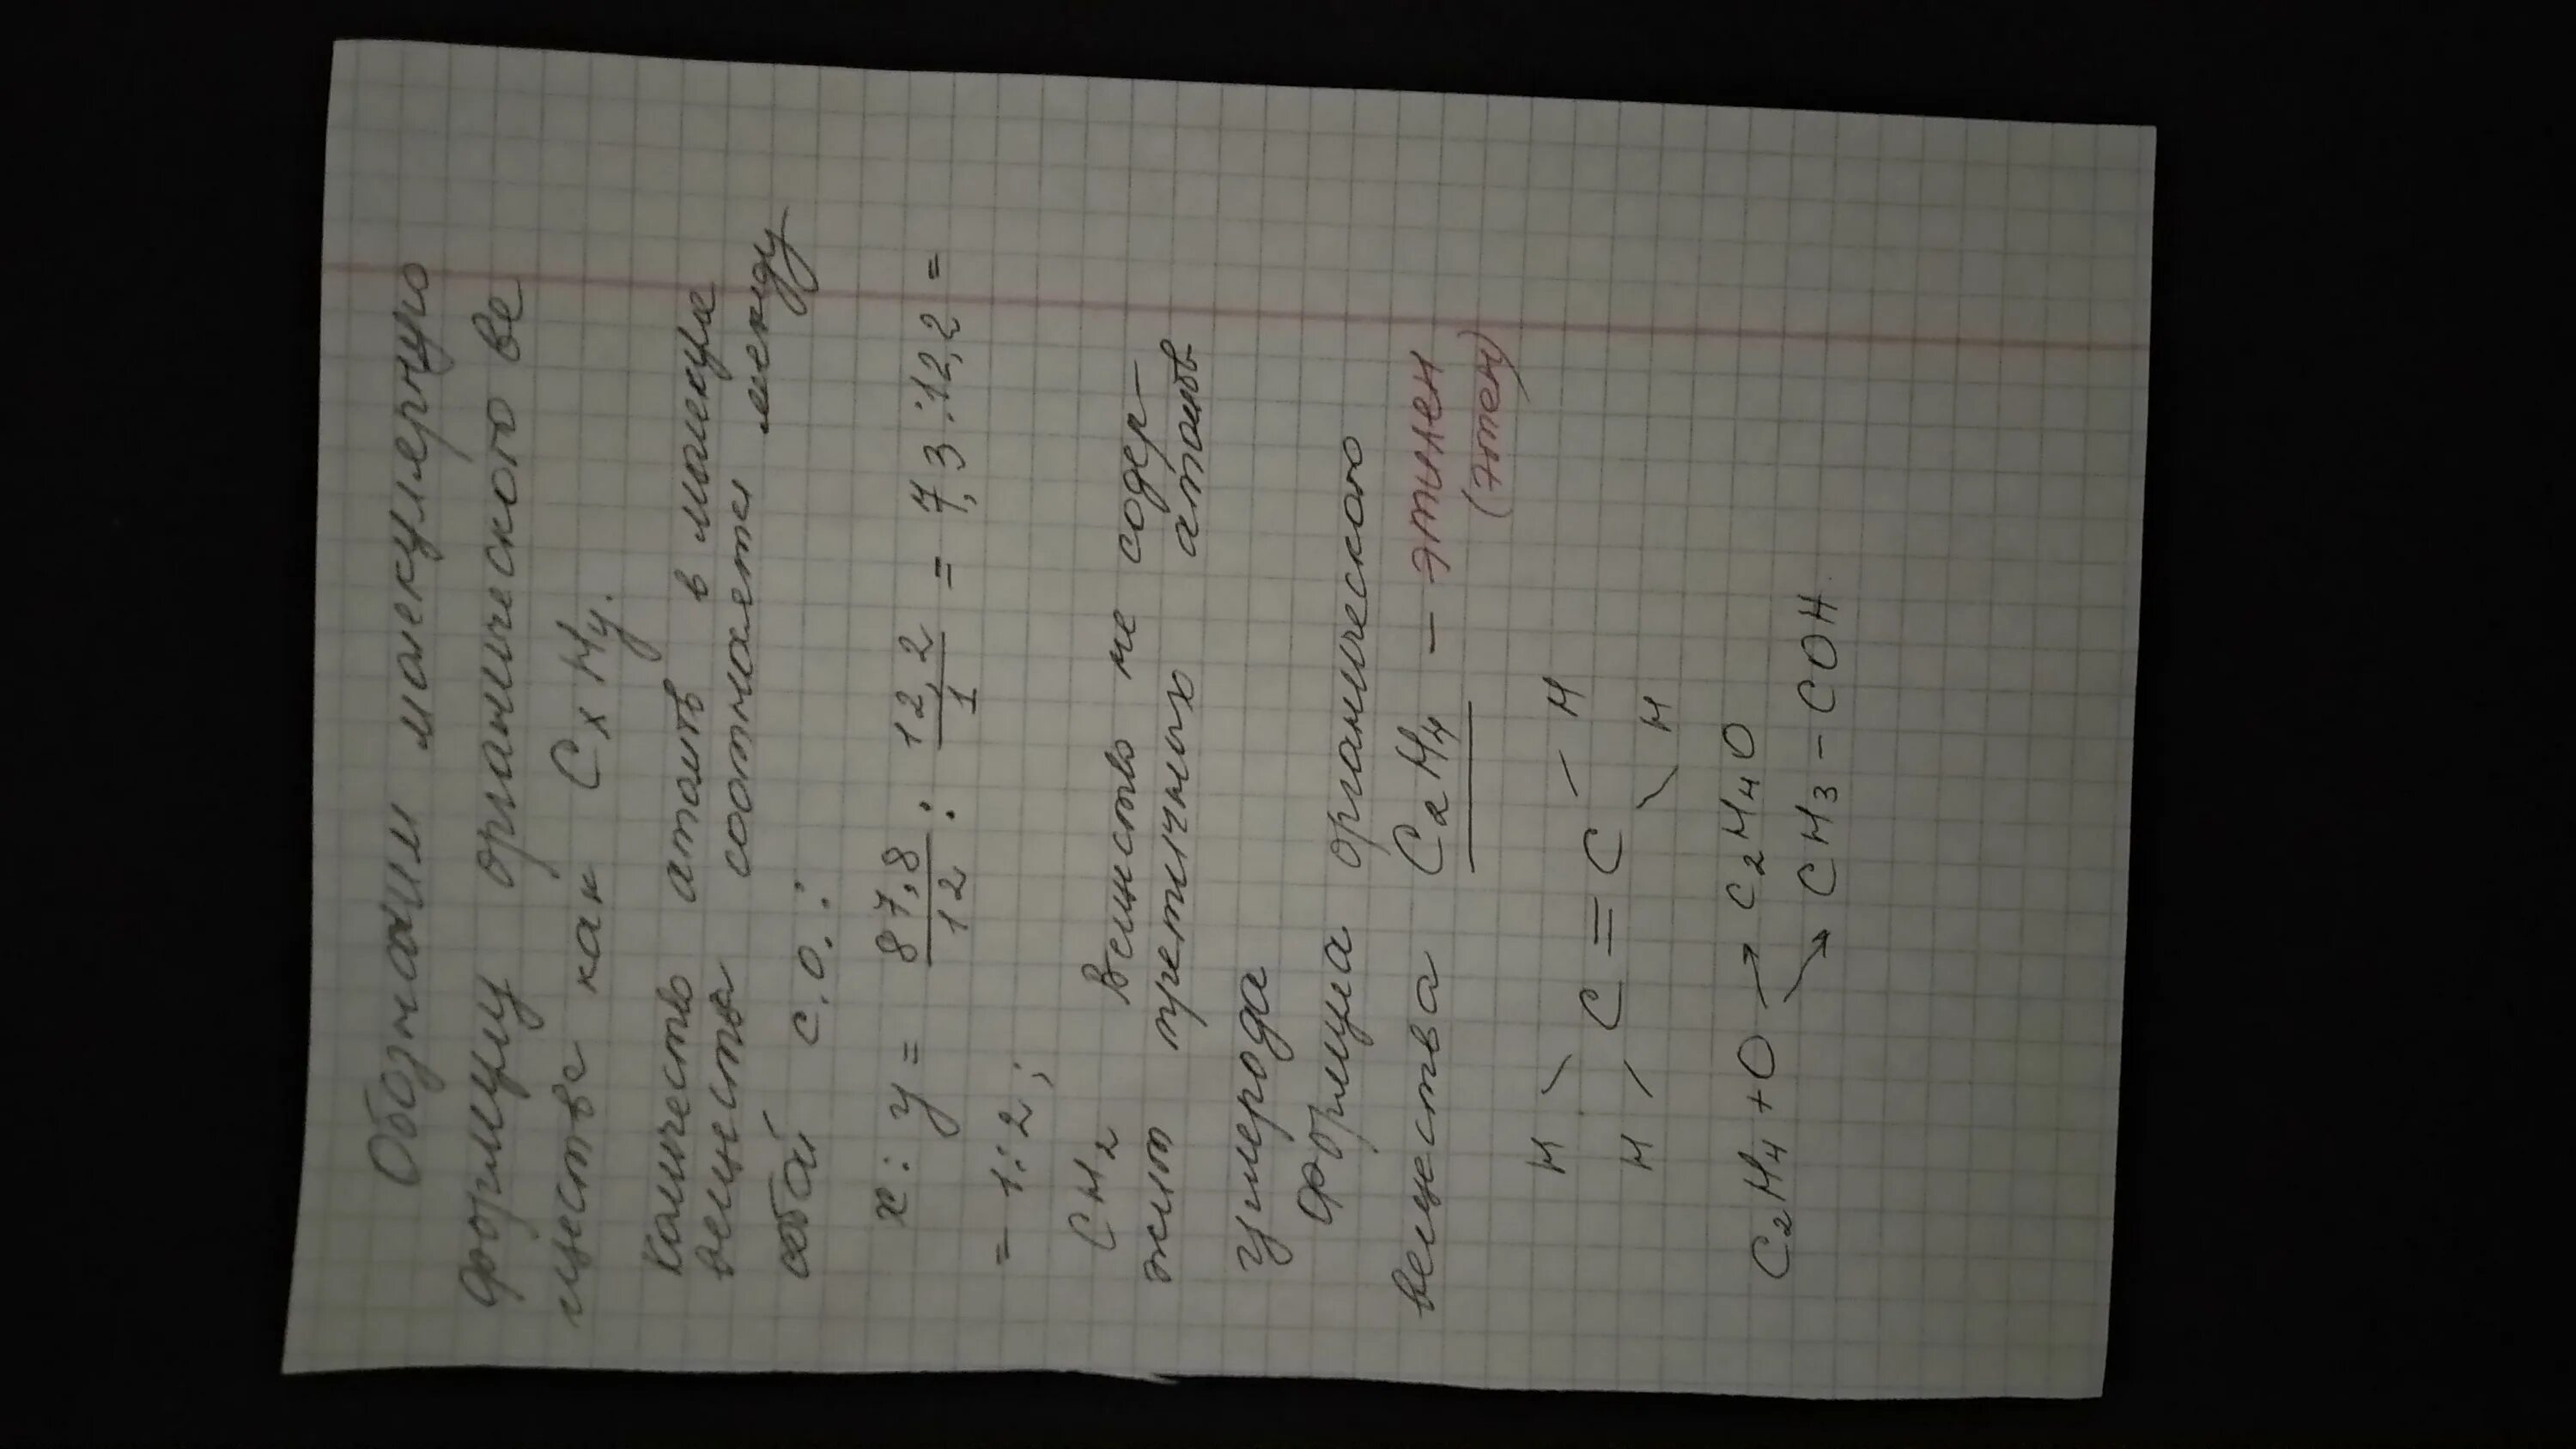 Обозначим молекулярную
формулу органического ве
ществе как CxHy.
Количество атомов в молекуле
вещества соотносятся между
собой с.о.:
x : y = 87,8/12 : 12,2/1 = 7,3:12,2 =
= 1:2;
CH2 Вещество не содер-
жит третичного атомов
углерода
Формула органического
вещества C2H4 - этилен
(этен)
H H
C = C
H H
C2H4 + O → C2H4O
→ CH3 - COH